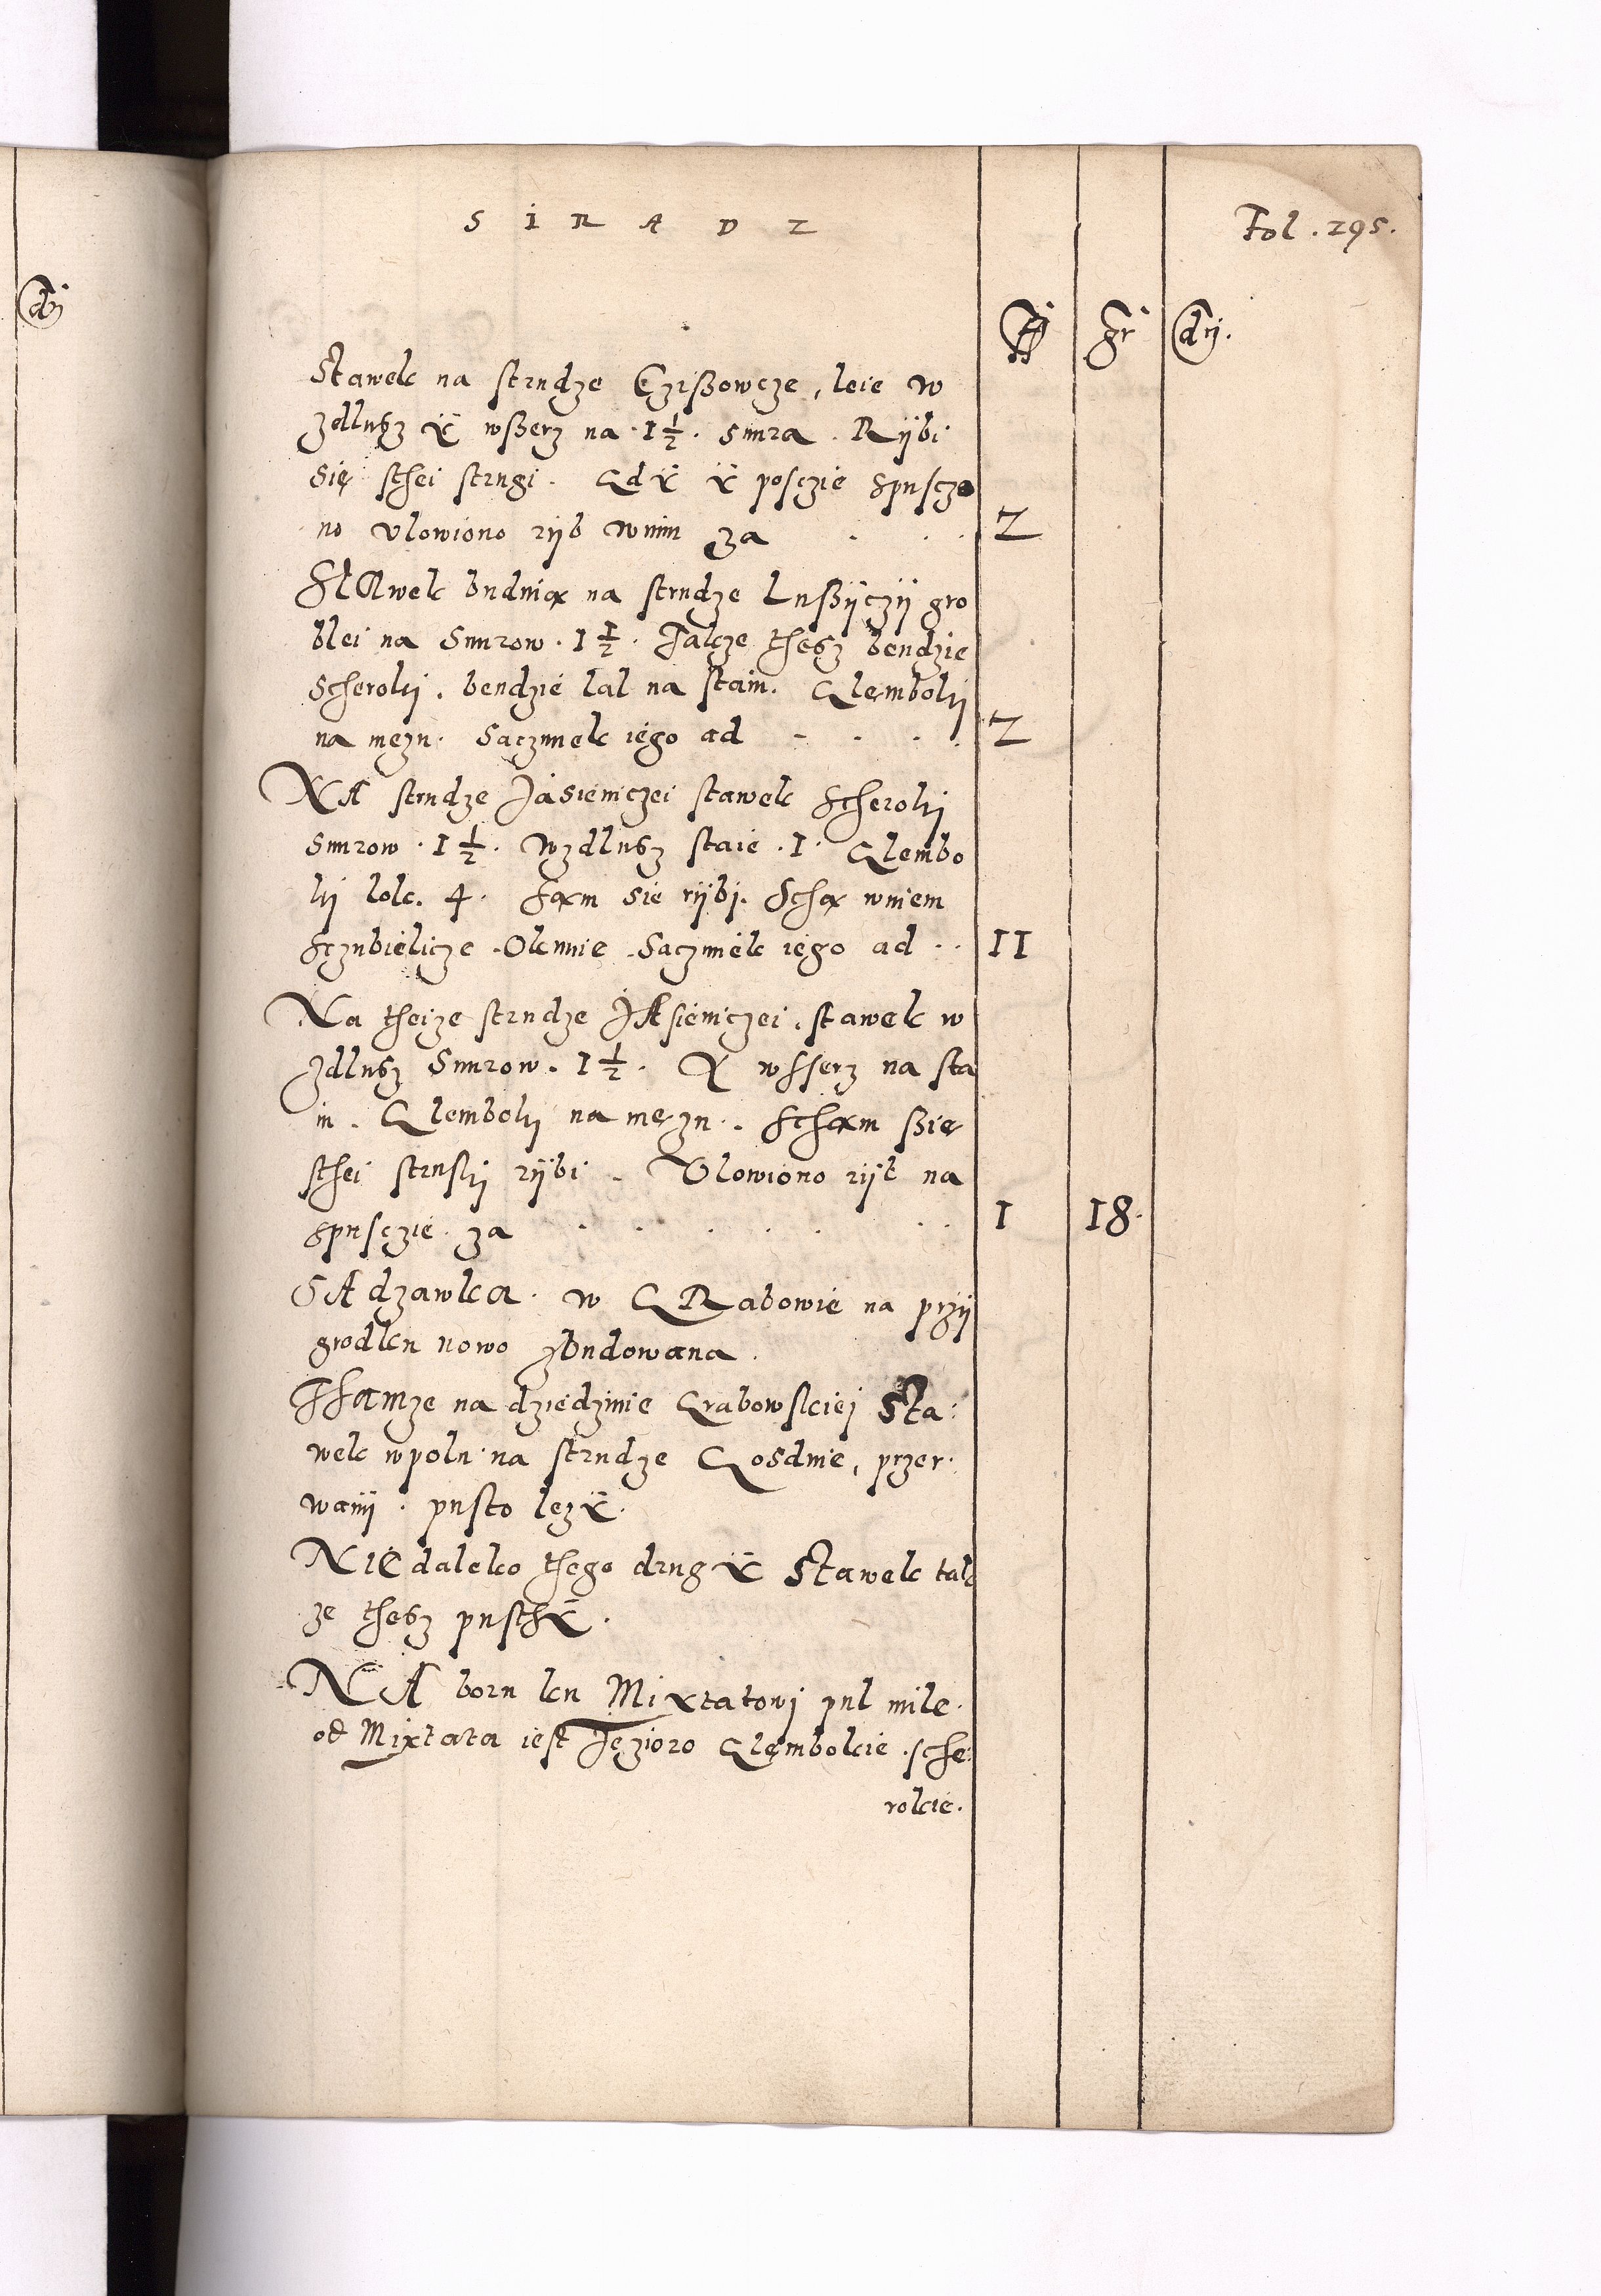 SIRADZ
Fol. 295.
fl gr dn.
Stawek na strudze Czißowcze, leie w
zdlusz y wßerz na 1 1/2. snura. Rÿbi
się sthei strugi. Gdÿ ÿ posczie spuscżo
no vlowiono rÿb wnim za . . . 2
Stawek budnia na strudze Lußÿczÿ gro
blei na Snurow. 1 1/2. Takze thesz bendzie
Scheroki. bendzie lal na stain. Glemboki
na męzu. Saczunek iego ad . . . . 2
NA strudze Jasieniczei stawek Scheroki
Snurow. 1 1/2. Wzdlusz staie. 1. Glembo
ki lok. 4. sam sie rÿbj. Scha wniem
Sczubielicze. Okunie. Saczunek iego ad . . 11
Na theize strudze JAsieniczei. stawek w
zdlusz Snurow. 1 1/2. Y wsserz na sta
in. Glemboki na męzu. Scham ßię
sthei struski rÿbi. Vlowiono rÿb na
spusczie. za . . . . . . . 1 18.
SAdzawka. w GRabowie na przÿ
grodku nowo zbudowana.
Thamze na dziedzinie Grabowskiej Sta:
wek wpolu na strudze Gosdnie, przer.
wanÿ. pusto lezÿ.
NIEdaleko thego drugÿ Stawek tak
ze thesz pusthÿ.
NA boru ku Mixtatowj pul mile.
od Mixtata iest Jęzioro Glębokie. sche:
rokie.